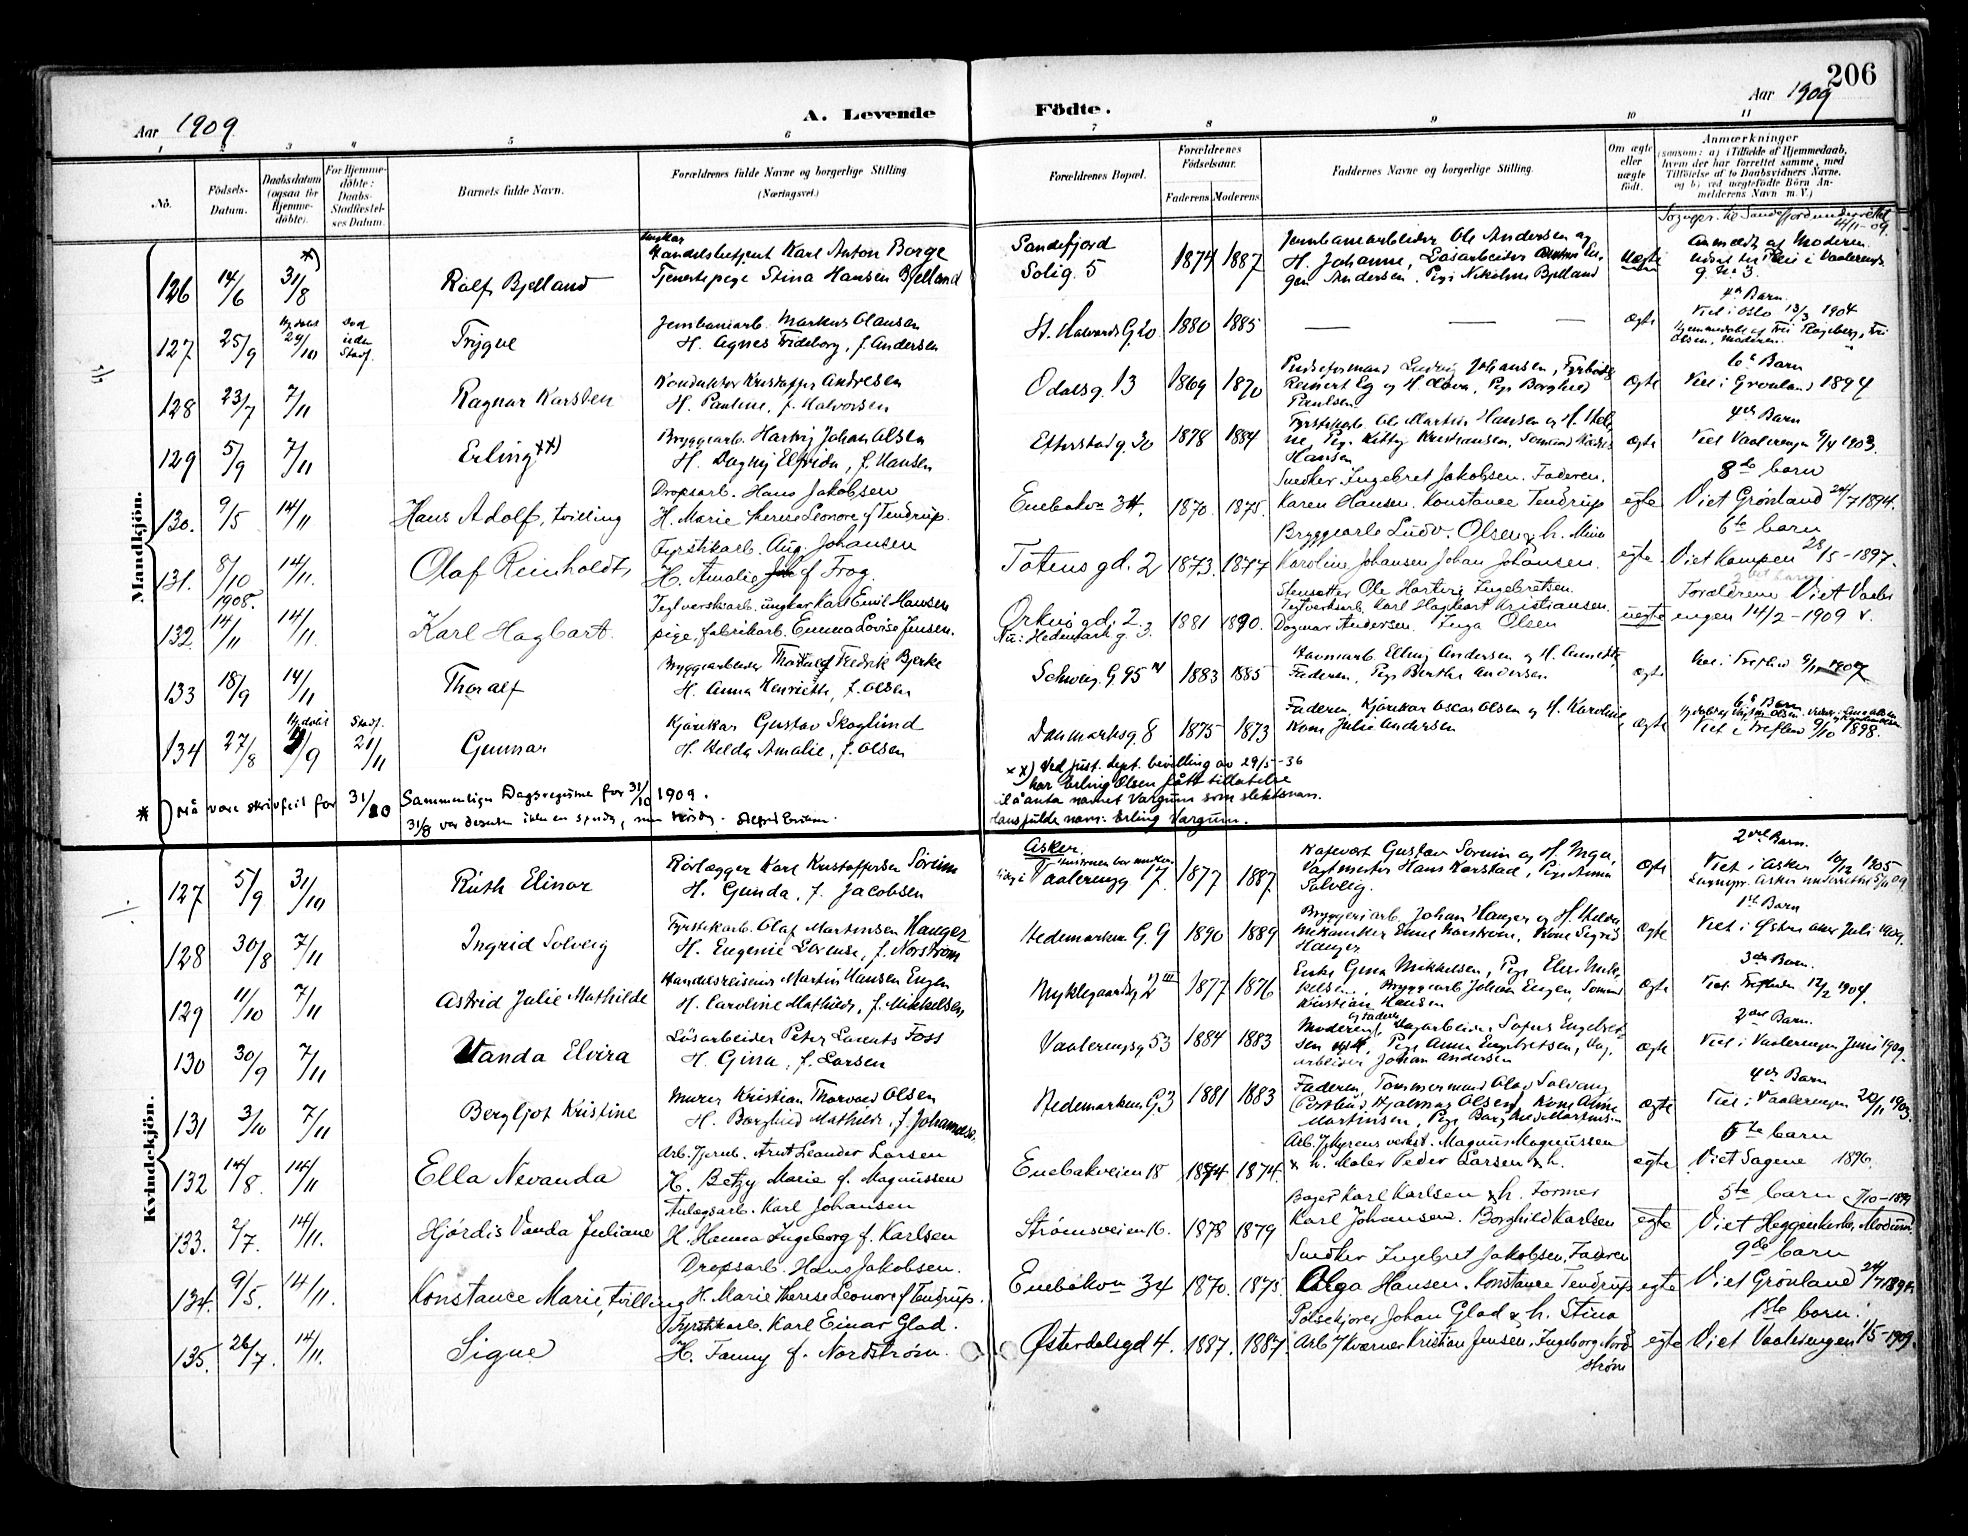 206
Aar 1909
A. Levende Födte.
Aar 1909
1 2 3 4 5 6 7 8 9 10 11
No.
Födsels-Datum.
Daabsdatum (ogsaa for Hjemmedöbte).
For Hjemmedöbte: Daabs-Stadfæstelses Datum.
Barnets fulde Navn.
Forældrenes fulde Navne og borgerlige Stilling (Næringsvei.)
Forældrenes Bopæl.
Forældrenes Födselsaar.
Faderens Moderens
Faddernes Navne og borgerlige Stilling.
Om ægte eller uægte födt.
Anmærkninger
(saasom: a) i Tilfælde af Hjemmedaab, hvem der har forrettet samme, med Tilföielse af to Daabsvidners Navne. og b) ved uægtefödte Börn Anmelderens Navn m. V.)
Mandkjön.
Sognepr. til Sandefjord underrettet 4/11-09.
126 14/6 31/8 *) Rolf Bjelland
Ungkar Handelsbetjent Karl Anton Borge
Tjenestepige Stina Hansen Bjelland
Sandefjord
Solig. 5
1874 1887
Jernbanearbeider Ole Andersen og
H. Johanne, Løsarbeider
Andersen. Pige Nikoline Bjelland
uægte
Anmeldt af Moderen
127 25/9 Hj.døbt 29/10 Død uden Stadf. Trygve
Jernbanearb. Markus Olausen
H. Agnes Frideborg, f. Andersen
St. Halvards G. 20 1880 1885 — — — ægte
4de Barn
Viet i Oslo 13/3 1904
Olsen, Moderen.
128 23/7 7/11 Ragnar Karsten
Konduktør Kristoffer Andresen
H. Pauline, f. Halvorsen
Odalsg. 13 1869 1870
Ludvig Johansen, Fyrbøder
Reinert Eg og H. Olava, Pige Borghild
Paulsen
ægte
6te Barn
Viet i Grønland 1894
129 5/9 7/11 Erling xx)
Bryggearb. Hartvig Johan Olsen
H. Dagny Elfrida, f. Hansen
Etterstadg. 20 1878 1884
Fyrstikarb. Ole Martin Hansen og H.
Pige Kitty Kristiansen, Sømand
Hansen
ægte
4de Barn
Viet Vaalerengen 9/4 1903.
130. 9/5 14/11 Hans Adolf, tvilling
Dropsarb. Hans Jakobsen
H. Marie Therese Leonore f Tendrup.
Enebakvn 34. 1870. 1875.
Snedker Ingebret Jakobsen. Faderen.
Karen Hansen. Konstance Tendrup
egte
8de barn
Viet Grønland 24/7 1894.
131. 8/10 1908. 14/11. Olaf Reinholdt,
Fyrstikarb. Aug. Johansen
H. Amalie f Frog.
Totensgd. 2 1873. 1877
Bryggearb Ludv. Olsen & h. Mina
Karoline Johansen Johan Johansen.
egte.
6te barn
Viet Kampen 28/5-1897.
132. 14/11 14/11. Karl Hagbart.
Teglverksarb. ungkar Karl Emil Hansen
pige, fabrikarb. Emma Lovise Jensen.
Orknø gd. 2.
Nu: Hedemark g. 3.
1881 1890.
Stensætter Ole Hartvig Ingebretsen.
Teglverksarb. Karl Hagbart Kristiansen.
Dagmar Andersen. Inga Olsen
uegte
Forældrene Viet Vaalerengen 14/2-1909
133 18/9 14/11 Thoralf
Bryggearbeider Thoralf Fredrik Bjerke
H. Anna Henriette, f. Olsen
Schweig. G. 95 1883 1885
Havnearb. Elling Andersen og H. Annette
Faderen, Pige Berthe Andersen
ægte
Viet i Trefold 9/11 1907
134 27/8 Hj.døbt 9/9 Stadf. 21/11 Gunnar
Kjørekar Gustav Skoglund
H. Hilda Amalie, f. Olsen
Danmarksg. 8 1875 1873
Faderen, Kjørekar Oscar Olsen og H. Karoline
Kone Julie Andersen
ægte
6te Barn
Viet i Trefold 9/10 1898.
* ) Må være skrivfeil for 31/10
Sammenlign Dagsregistre for 31/10 1909.
31/8 var desuten ikke en søndag, men tirsdag.
xx) Ved just. dept. bevilling av 29/5-36
har Erling Olsen fått tillatelse
til å anta navnet Vargum som slektsnavn.
Hans fulde navn: Erling Vargum.
Kvindekjön.
127 5/9 31/10 Ruth Elinor
Rørlægger Karl Kristoffersen Söreim
H. Gunda, f. Jacobsen
Asker
Vaalerengg 17 1877 1887
Kafevært Gustav Soreim og H. Inga,
Vagtmester Hans Karstad, Pige
Solveig.
ægte
2det Barn.
Viet i Asker 10/12 1905
Sognepr. Asker underrettet 5/11 09
128 30/8 7/11 Ingrid Solveig
Fyrstikarb. Olaf Martinsen Hauger
H. Eugenie Lovense, f. Norstrøm
Hedemarken G. 9 1890 1889
Bryggeriarb. Johan Hauger og H. Hilda
Mekaniker Norstrøm, Kone Sigrid
Hauger
ægte
1ste Barn
Viet i Østre Aker Juli 1909.
129 11/10 7/11 Astrid Julie Mathilde
Handelsreisende Martin Hansen Engen
H. Caroline Mathilde, f. Mikkelsen
Nyklegaardsg 12 III 1877 1876
Enke Gina Mikkelsen, Pige
Bryggearb Johan Engen, Sømand
Kristian Hansen
ægte
3de Barn.
Viet Trefold. 12/2 1904.
130 30/9 7/11 Vanda Elvira
Løsarbeider Peter Laurits Foss
H. Gina, f. Larsen
Vaalerengsg 53 1884 1883
Moderen, og Faderen Dagarbeider Sofus Engebretsen
og H, Pige Anna Engebretsen, Dagarbeider Johan Andersen
ægte
2det Barn.
Viet i Vaalerengen Juni 1909.
131 3/10 7/11 Bergljot Kristine
Murer Kristian Thorvald Olsen
H. Borghild Mathilde, f. Johansen.
Hedemarken G. 3 1881 1883
Faderen, Tømmermand Olav Solvang
(Postbud. Hjalmar Olsen) Kone Anne
Martinsen, Pige Borghild Martinsen
ægte
4de Barn
Viet i Vaalerengen 20/11 1903.
132 14/8. 14/11 Ella Nevanda
Arb. Jernb. Arnt Leander Larsen
H. Betzy Marie f. Magnussen
Enebakveien 18 1874 1874.
Arb. Myrens verkst. Magnus Magnussen
& h. Maler Peder Larsen & h.
egte
5te barn
Viet Sagene 1896.
133. 2/7. 14/11. Hjørdis Vanda Juliane
Anlægsarb. Karl Johansen
H. Hanna Ingeborg f. Karlsen
Strømsveien 16. 1878 1879
Bager Karl Karlsen & h. Former
Karl Johansen. Borghild Karlsen
egte
5te barn 7/10-1899
Viet Heggenkirke, Modum.
134. 9/5. 14/11. Konstance Marie, tvilling
Dropsarb. Hans Jakobsen.
H. Marie Therese Leonore f Tendrup.
Enebakvn 34 1870. 1875.
Snedker Ingebret Jakobsen, Faderen
Olga Hansen. Konstance Tendrup
egte
9de barn
Viet Grønland 24/7 1894.
135. 26/7. 14/11. Signe
Fyrstikarb. Karl Einar Glad.
H. Fanny f. Nordstrøm.
Østerdalsgd 4. 1887. 1887.
Pølsekjører Johan Glad & h. Stina
Arb. Kværner Kristian Jensen. Ingeborg Nordstrøm
egte
1ste barn.
Viet Vaalerengen 1/5-1909.